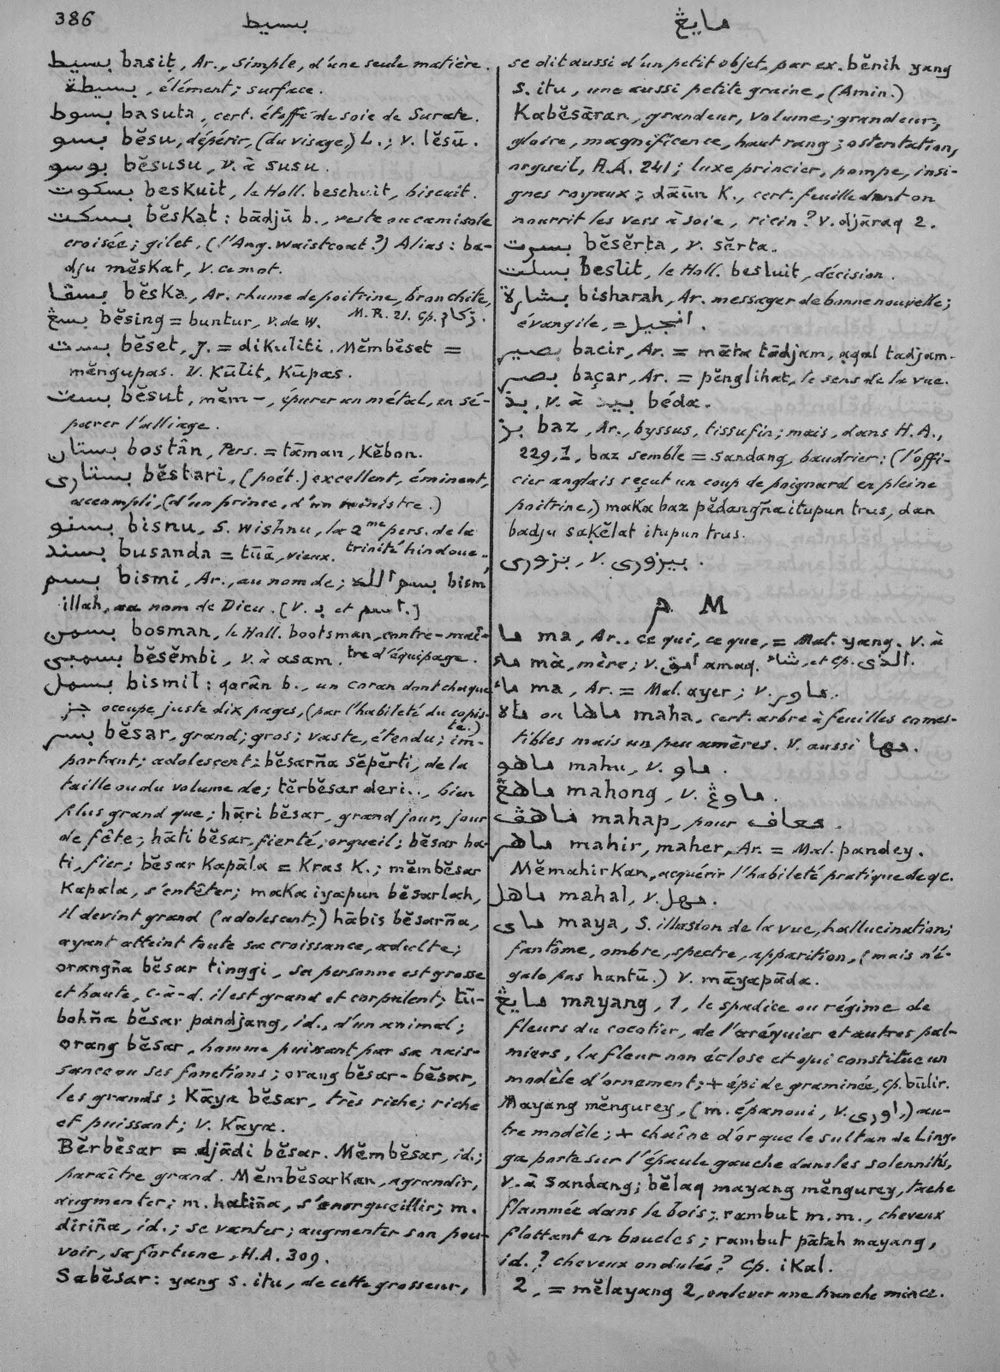 386 بسيط مايڠ
بسيط basiṭ, Ar., simple, d'une seule matière.
بسيطة, élément; surface.
بسوط basuta, cert. étoffe de soie de Surate.
بسو bĕsu, dépérir, (du visage,) L.; v. lĕsū.
بوسو bĕsusu, v. à susu.
بسكوت beskuit, le Holl. beschuit, biscuit.
بسكت bĕskat: bādjū b., veste ou camisole
croisée; gilet, (l'Ang. waistcoat?) Alias: ba-
dju mĕskat, v. ce mot.
بسقا bĕska, Ar. rhume de poitrine, bronchite,
M.R. 21. Cp. زكام.
بسڠ bĕsing = buntur, v. de W.
بست bĕset, J. = dikuliti. Mĕmbĕset =
mĕngupas. V. Kūlit, Kūpas.
بست bĕsut, mĕm-, épurer un métal, en sé-
parer l'alliage.
بستان bostân, Pers. = tāman, Kĕbon.
بستاری bĕstari, (poét.) excellent, éminent,
accompli, (d'un prince, d'un ministre.)
بسنو bisnu, S. wishnu, la 2me pers. de la
trinité hindoue.
بسند busanda = tūā, vieux.
بسم bismi, Ar., au nom de; بسم الله bism
illah, au nom de Dieu. (V. بـ et اسم.)
بسمن bosman, le Holl. bootsman, contre-maî-
tre d'équipage.
بسمبي bĕsĕmbi, v. à asam.
بسمل bismil: qorân b., un coran dont chaque
جز occupe juste dix pages, (par l'habileté du copis-
te.)
بسر bĕsar, grand; gros; vaste, étendu; im-
portant; adolescent: bĕsarña sĕpĕrti, de la
taille ou du volume de; tĕrbĕsar deri.., bien
plus grand que; hāri bĕsar, grand jour, jour
de fête; hāti bĕsar, fierté, orgueil; bĕsar ha-
ti, fier; bĕsar Kapāla = Kras K.; mĕmbĕsar
Kapala, s'entêter; maka iyapun bĕsarlah,
il devint grand (adolescent;) hābis bĕsarña,
ayant atteint toute sa croissance, adulte;
orangña bĕsar tinggi, sa personne est grosse
et haute, c-à-d. il est grand et corpulent; tū-
bohña bĕsar pandjang, id., d'un animal;
orang bĕsar, homme puissant par sa nais-
sance ou ses fonctions; orang bĕsar-bĕsar,
les grands; Kāya bĕsar, très riche; riche
et puissant; v. Kāya.
Bĕrbĕsar = djādi bĕsar. Mĕmbĕsar, id.;
paraître grand. Mĕmbĕsarkan, agrandir,
augmenter; m. hatiña, s'enorgueillir; m.
diriña, id.; se vanter; augmenter son pou-
voir, sa fortune, H.A. 309.
Sabĕsar: yang s. itu, de cette grosseur,
se dit aussi d'un petit objet, par ex. bĕnih yang
s. itu, une aussi petite graine, (Amin.)
Kabĕsāran, grandeur, volume; grandeur,
gloire, magnificence, haut rang; ostentation,
orgueil, A.A. 241; luxe princier, pompe, insi-
gnes royaux; dāūn K., cert. feuille dont on
nourrit les vers à soie, ricin? v. djāraq 2.
بسرت bĕsĕrta, v. sĕrta.
بسلت beslit, le Holl. besluit, décision.
بشارة bisharah, Ar. messager de bonne nouvelle;
évangile, = انجيل.
بصير bacir, Ar. = māta tādjam, aqal tadjam.
بصر baçar, Ar. = pĕnglihat, le sens de la vue.
بذ, v. à بيد béda.
بز baz, Ar., byssus, tissu fin; mais, dans H.A.,
229,1, baz semble = sandang, baudrier: (l'offi-
cier anglais reçut un coup de poignard en pleine
poitrine,) maka baz pĕdangña itupun trus, dan
badju saKĕlat itupun trus.
بزوری, v. بيزوری.
م M
ما ma, Ar., ce qui, ce que, = Mal. yang. V. à
الذی, et cp. شاء.
ماء mà, mère; v. امق amaq.
ماء ma, Ar. = Mal. ayer; v. ماور.
مالا ou ماها maha, cert. arbre à feuilles comes-
tibles mais un peu amères. V. aussi مها.
ماهو mahu, v. ماو.
ماهڠ mahong, v. ماوڠ.
ماهڤ mahap, pour معاف.
ماهر mahir, maher, Ar. = Mal. pandey.
Mĕmahirkan, acquérir l'habileté pratique de qc.
ماهل mahal, v. مهل.
مای maya, S. illusion de la vue, hallucination;
fantôme, ombre, spectre, apparition, (mais n'é-
gale pas hantū.) V. māyapāda.
مايڠ mayang, 1, le spadice ou régime de
fleurs du cocotier, de l'aréquier et autres pal-
miers, la fleur non éclose et qui constitue un
modèle d'ornement; + épi de graminée, cp. būlir.
Mayang mĕngurey, (m. épanoui, v. اوری,) au-
tre modèle; + chaîne d'or que le sultan de Ling-
ga porte sur l'épaule gauche dans les solennités,
v. à sandang; bĕlaq mayang mĕngurey, tache
flammée dans le bois; rambut m.m., cheveux
flottant en boucles; rambut pātah mayang,
id.? cheveux ondulés? Cp. iKal.
2, = mĕlayang 2, enlever une tranche mince.